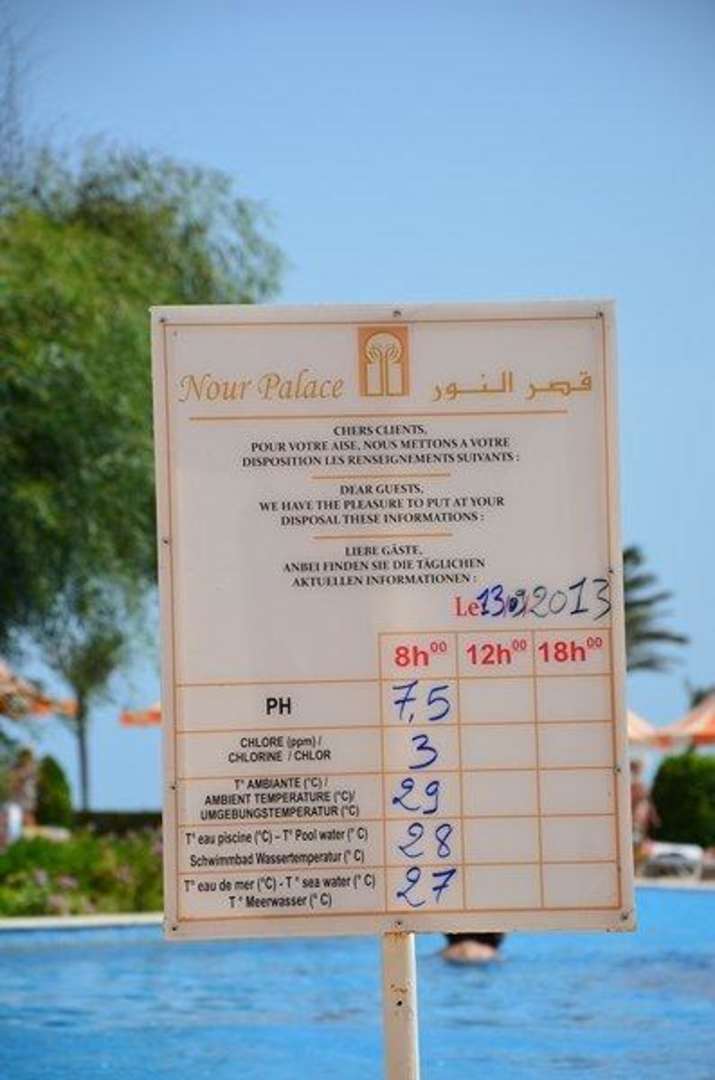 Nour Palace قصر النور
CHERS CLIENTS,
POUR VOTRE AISE, NOUS METTONS A VOTRE
DISPOSITION LES RENSEIGNEMENTS SUIVANTS :
DEAR GUESTS,
WE HAVE THE PLEASURE TO PUT AT YOUR
DISPOSAL THESE INFORMATIONS :
LIEBE GÄSTE,
ANBEI FINDEN SIE DIE TÄGLICHEN
AKTUELLEN INFORMATIONEN :
Le 13/09/2013
8h00 12h00 18h00
PH 7,5
CHLORE (ppm) /
CHLORINE / CHLOR 3
T° AMBIANTE (°C)/
AMBIENT TEMPERATURE (°C)/
UMGEBUNGSTEMPERATUR (°C) 29
T° eau piscine (°C) – T° Pool water (° C)
Schwimmbad Wassertemperatur (° C) 28
T° eau de mer (°C) - T ° sea water (°C)
T ° Meerwasser (° C) 27